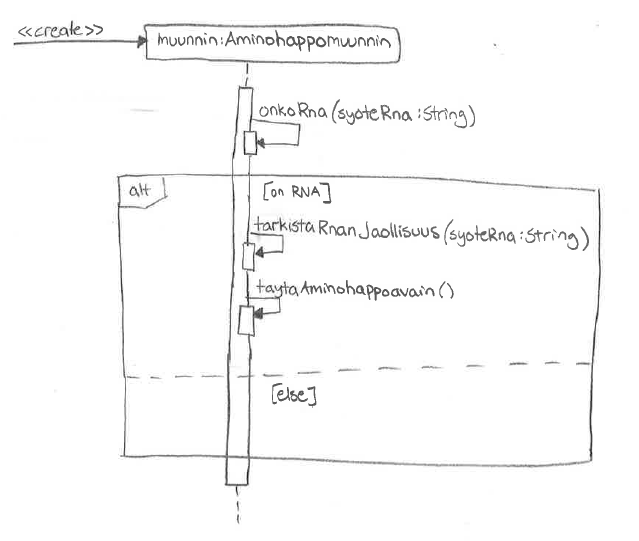 <<create>>
muunnin:Aminohappomuunnin
onkoRna(syoteRna:String)
alt
[on RNA]
tarkistaRnanJaollisuus(syoteRna:String)
taytaAminohappoavain()
[else]